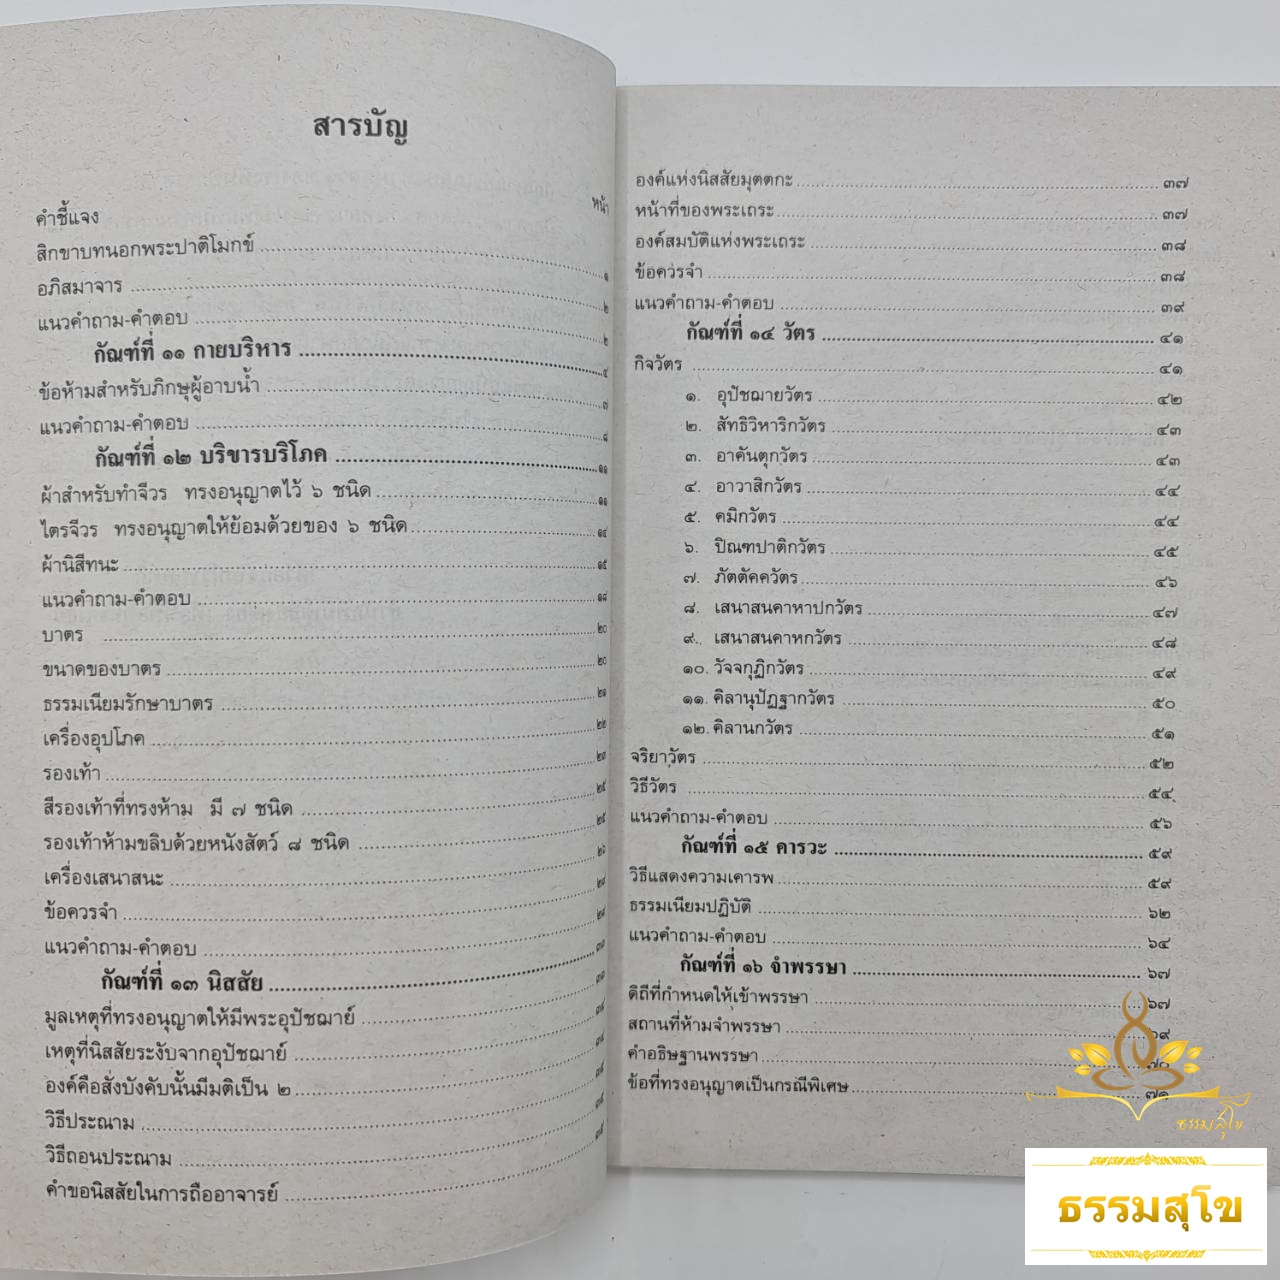 สารบัญ
หน้า
คำชี้แจง
สิกขาบทนอกพระปาติโมกข์ ๑
อภิสมาจาร ๒
แนวคำถาม-คำตอบ ๒
กัณฑ์ที่ ๑๑ กายบริหาร ๔
ข้อห้ามสำหรับภิกษุผู้อาบน้ำ ๗
แนวคำถาม-คำตอบ ๘
กัณฑ์ที่ ๑๒ บริขารบริโภค ๑๑
ผ้าสำหรับทำจีวร ทรงอนุญาตไว้ ๖ ชนิด ๑๑
ไตรจีวร ทรงอนุญาตให้ย้อมด้วยของ ๖ ชนิด ๑๔
ผ้านิสีทนะ ๑๕
แนวคำถาม-คำตอบ ๑๘
บาตร ๒๐
ขนาดของบาตร ๒๐
ธรรมเนียมรักษาบาตร ๒๑
เครื่องอุปโภค ๒๒
รองเท้า
สีรองเท้าที่ทรงห้าม มี ๗ ชนิด
รองเท้าห้ามขลิบด้วยหนังสัตว์ ๘ ชนิด
เครื่องเสนาสนะ
ข้อควรจำ
แนวคำถาม-คำตอบ
กัณฑ์ที่ ๑๓ นิสสัย
มูลเหตุที่ทรงอนุญาตให้มีพระอุปัชฌาย์
เหตุที่นิสสัยระงับจากอุปัชฌาย์
องค์คือสั่งบังคับนั้นมีมติเป็น ๒
วิธีประณาม
วิธีถอนประณาม
คำขอนิสสัยในการถืออาจารย์
องค์แห่งนิสสัยมุตตกะ ๓๗
หน้าที่ของพระเถระ ๓๗
องค์สมบัติแห่งพระเถระ ๓๘
ข้อควรจำ ๓๘
แนวคำถาม-คำตอบ ๓๙
กัณฑ์ที่ ๑๔ วัตร ๔๑
กิจวัตร ๔๑
๑. อุปัชฌายวัตร ๔๒
๒. สัทธิวิหาริกวัตร ๔๓
๓. อาคันตุกวัตร ๔๓
๔. อาวาสิกวัตร ๔๔
๕. คมิกวัตร ๔๔
๖. ปิณฑปาติกวัตร ๔๕
๗. ภัตตัคควัตร ๔๖
๘. เสนาสนคาหาปกวัตร ๔๗
๙. เสนาสนคาหกวัตร ๔๘
๑๐. วัจจกุฏิกวัตร ๔๙
๑๑. คิลานุปัฏฐากวัตร ๕๐
๑๒. คิลานกวัตร ๕๑
จริยาวัตร ๕๒
วิธีวัตร ๕๔
แนวคำถาม-คำตอบ ๕๖
กัณฑ์ที่ ๑๕ คารวะ ๕๙
วิธีแสดงความเคารพ ๕๙
ธรรมเนียมปฏิบัติ ๖๒
แนวคำถาม-คำตอบ ๖๔
กัณฑ์ที่ ๑๖ จำพรรษา ๖๗
ดิถีที่กำหนดให้เข้าพรรษา ๖๗
สถานที่ห้ามจำพรรษา ๖๙
คำอธิษฐานพรรษา ๗๐
ข้อที่ทรงอนุญาตเป็นกรณีพิเศษ ๗๑
ธรรมสุโข
ธรรมสุโข